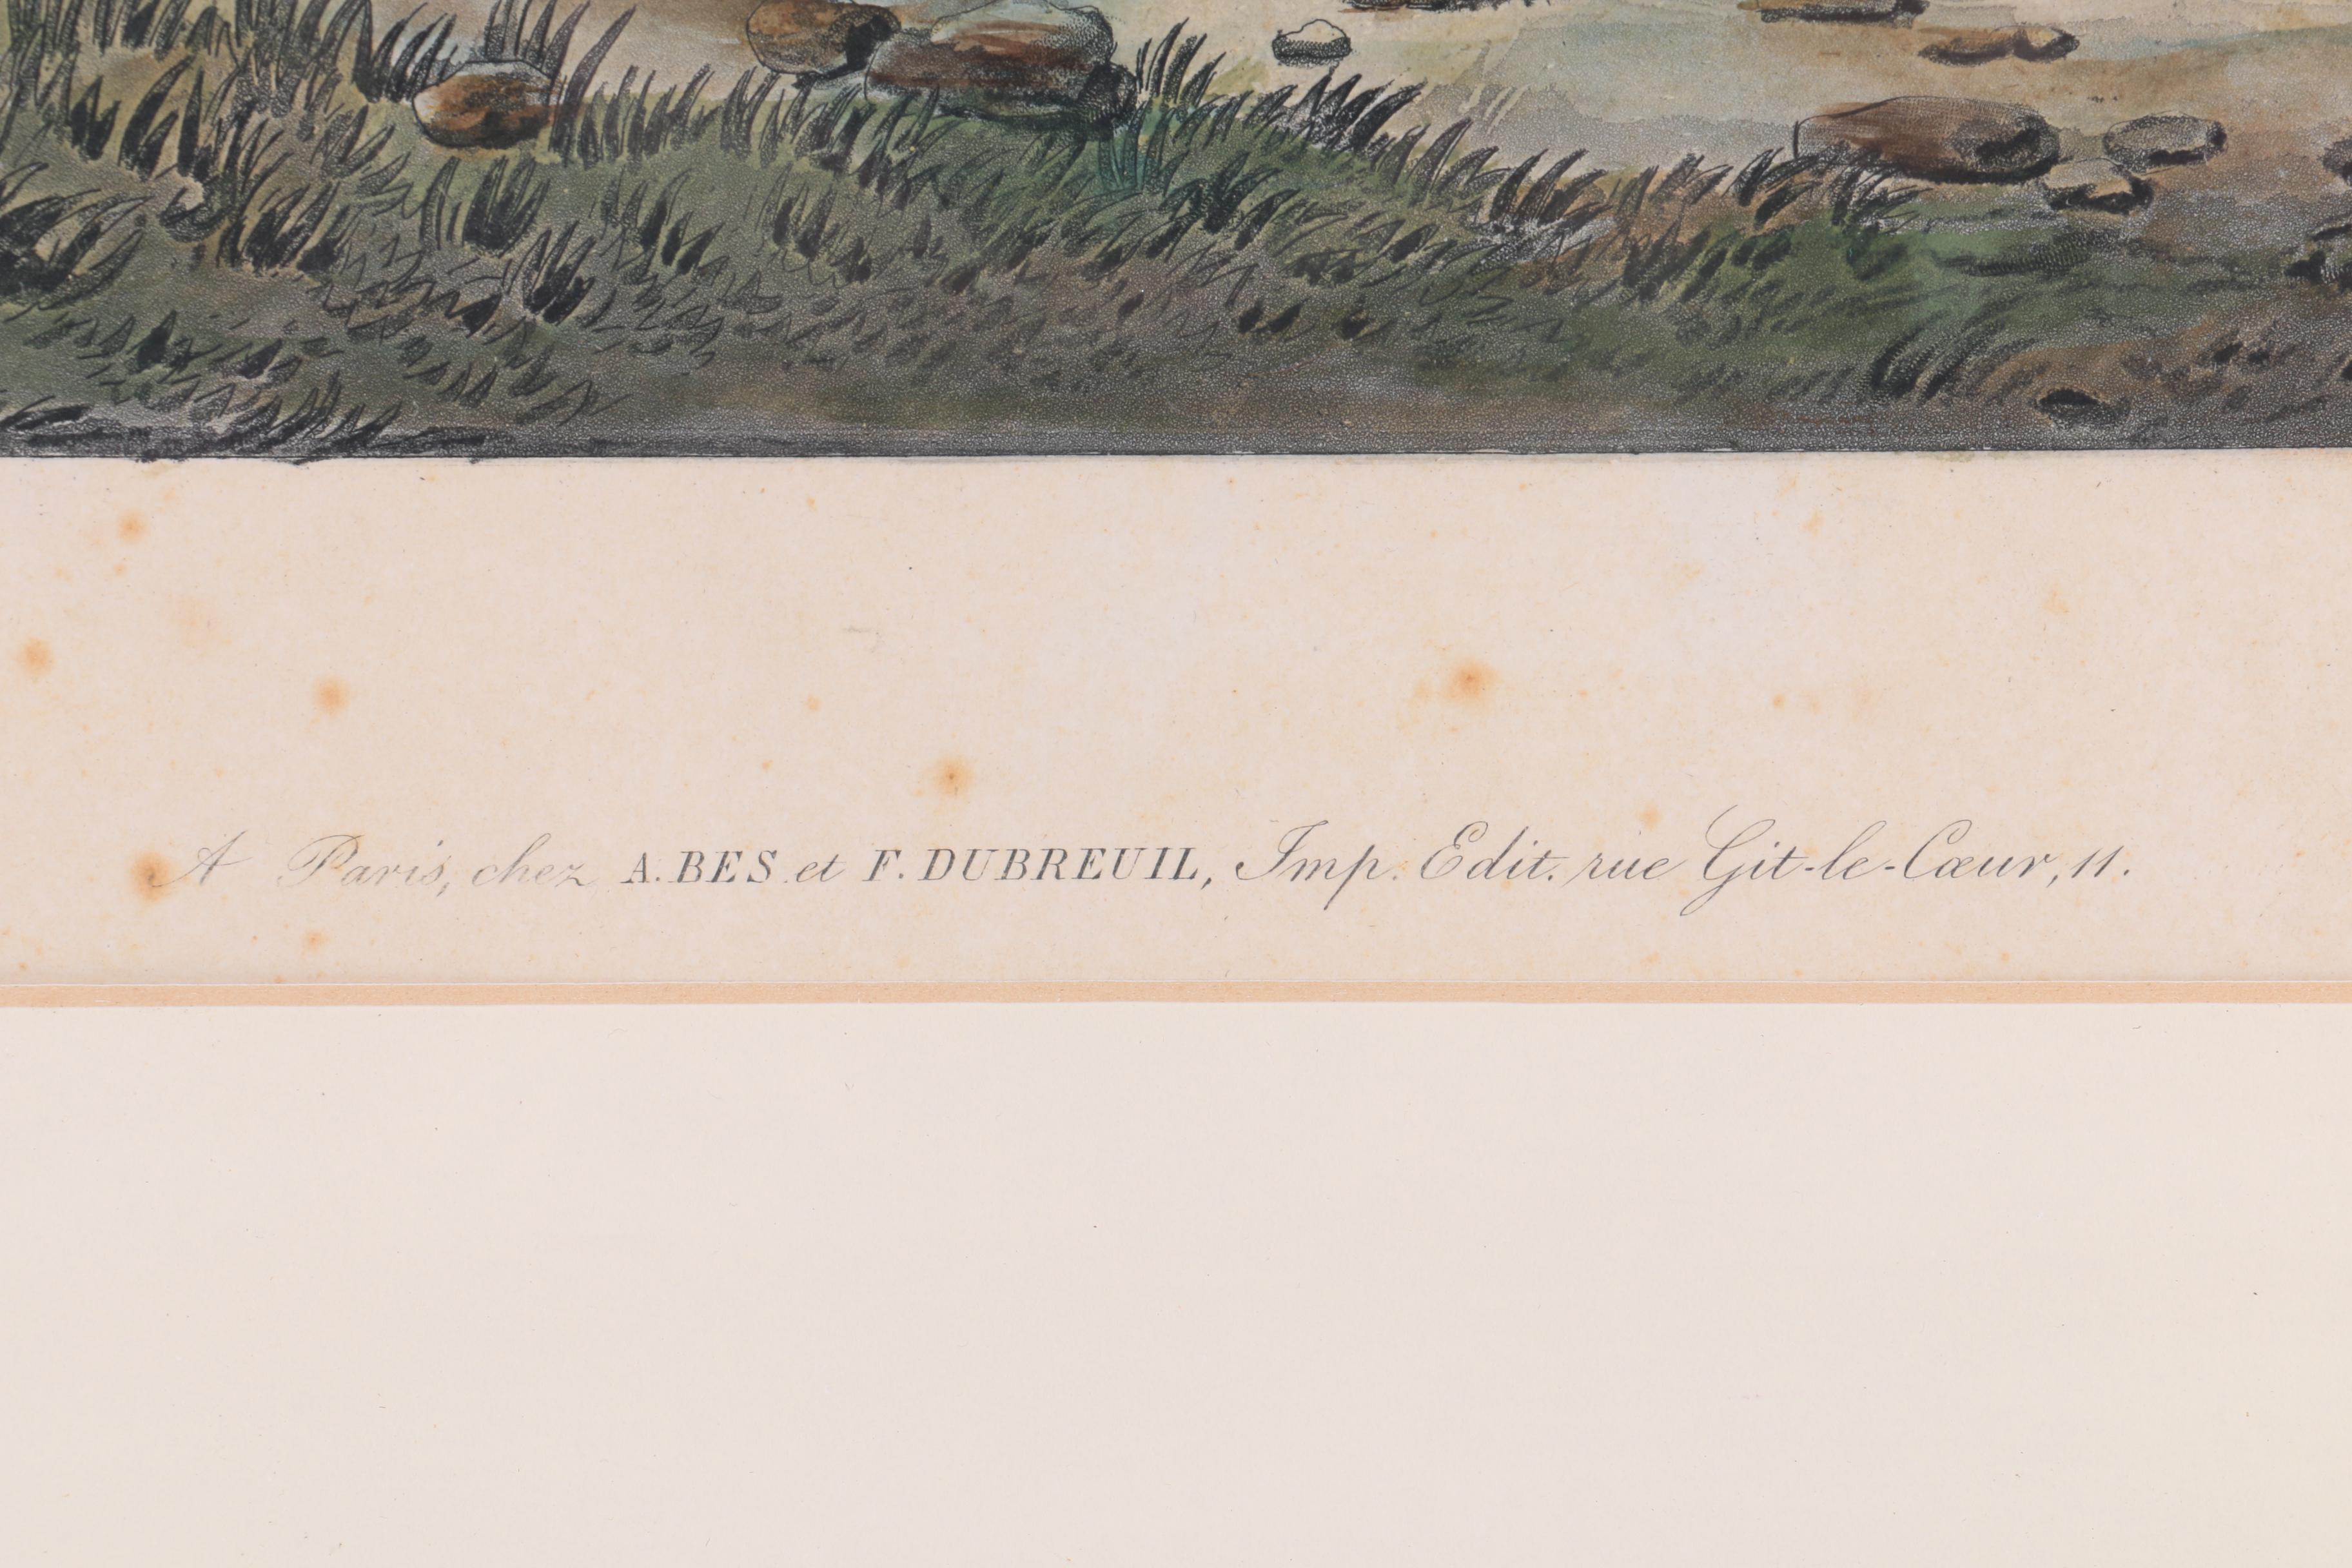 A Paris, chez A. BES et F. DUBREUIL, Imp. Edit. rue Git-le-Cœur, 11.